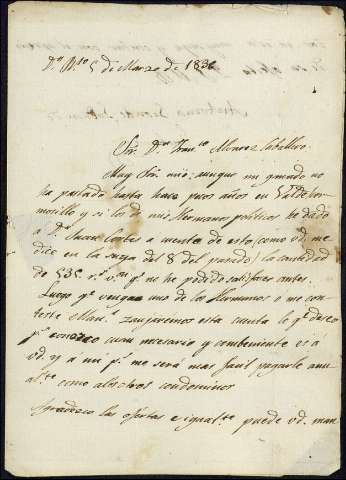 5 de Marzo de 1836
Sor. Dn. Franco. Alvarez Caballero.
Muy Sor. mio: aunque mi ganado no
ha pastado hasta hace pocos años en Valdehor
mosillo y si los de mis Hermanos politicos he dado
á Dn. Juan Cortes a cuenta de esto (como vd. me
dice en la suya del 8 del pasado) la cantidad
de 535 rs. vn. qe. no he podido satisfacer antes.
Luego qe. venga uno de los Hermanos o me con
teste Manl. zanjaremos esta cuenta lo qe. deseo
ps. conozco cuan necesario y combeniente es á
vd. y á mi ps. me será mas facil pagarle anu
alte. como alos otros condominos
Agradezco las ofertas e igualte. puede vd. man